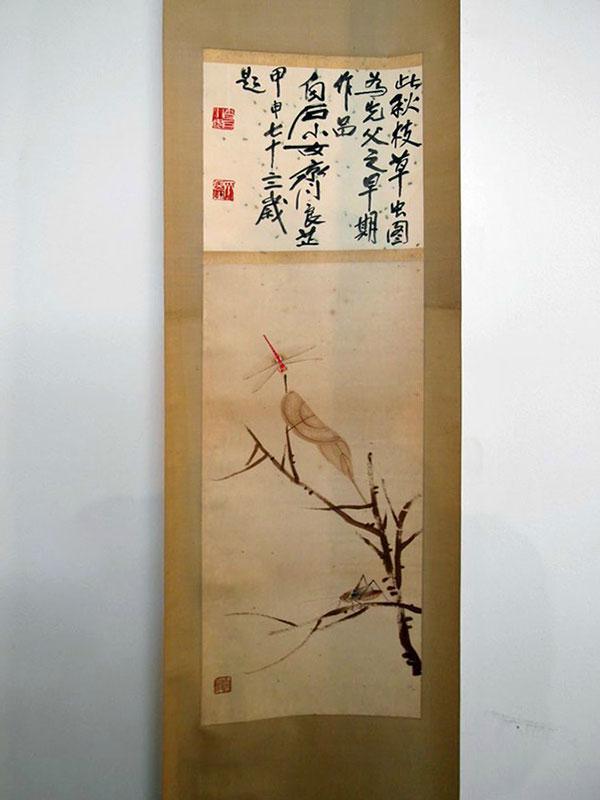 此秋枝草虫图
为先父之早期
作品
白石小女齐良芷
甲申七十三岁
题